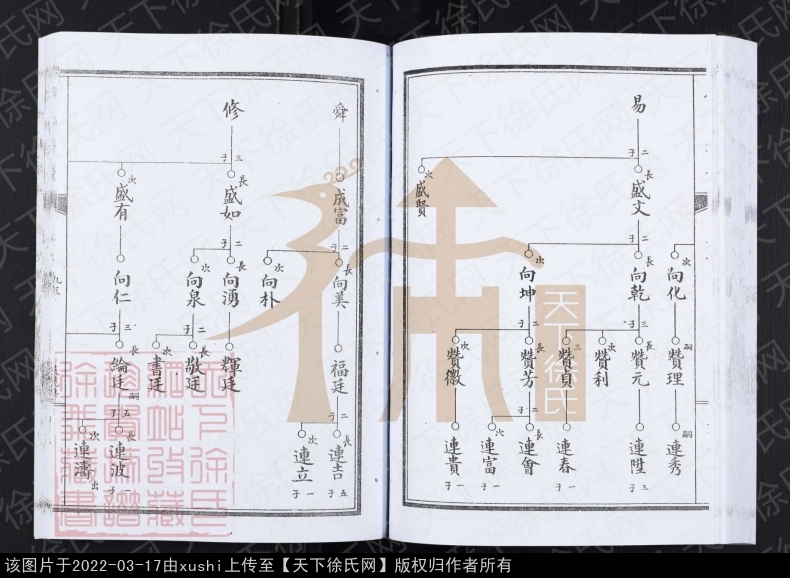 易
二子
長 盛文
次 盛賢
二子
次 向化
長 向乾
次 向坤
三子
二子
嗣 贊理
長 贊元
次 贊利
三 贊貞
長 贊芳
次 贊徽
二子
嗣 連秀
連陞
三子
連春
一子
長 連會
一子
次 連富
一子
連貴
一子
舜
成富
二子
長 向美
次 向朴
福廷
二子
長 連吉
五子
次 連立
一子
修
三子
長 盛如
次 盛有
二子
長 向湧
次 向泉
向仁
二子
三子
輝廷
長 敬廷
次 書廷
長 綸廷
嗣
五子
長 連波
子
次 連濤
出
天下徐氏
天下徐氏网
该图片于2022-03-17由xushi上传至【天下徐氏网】版权归作者所有